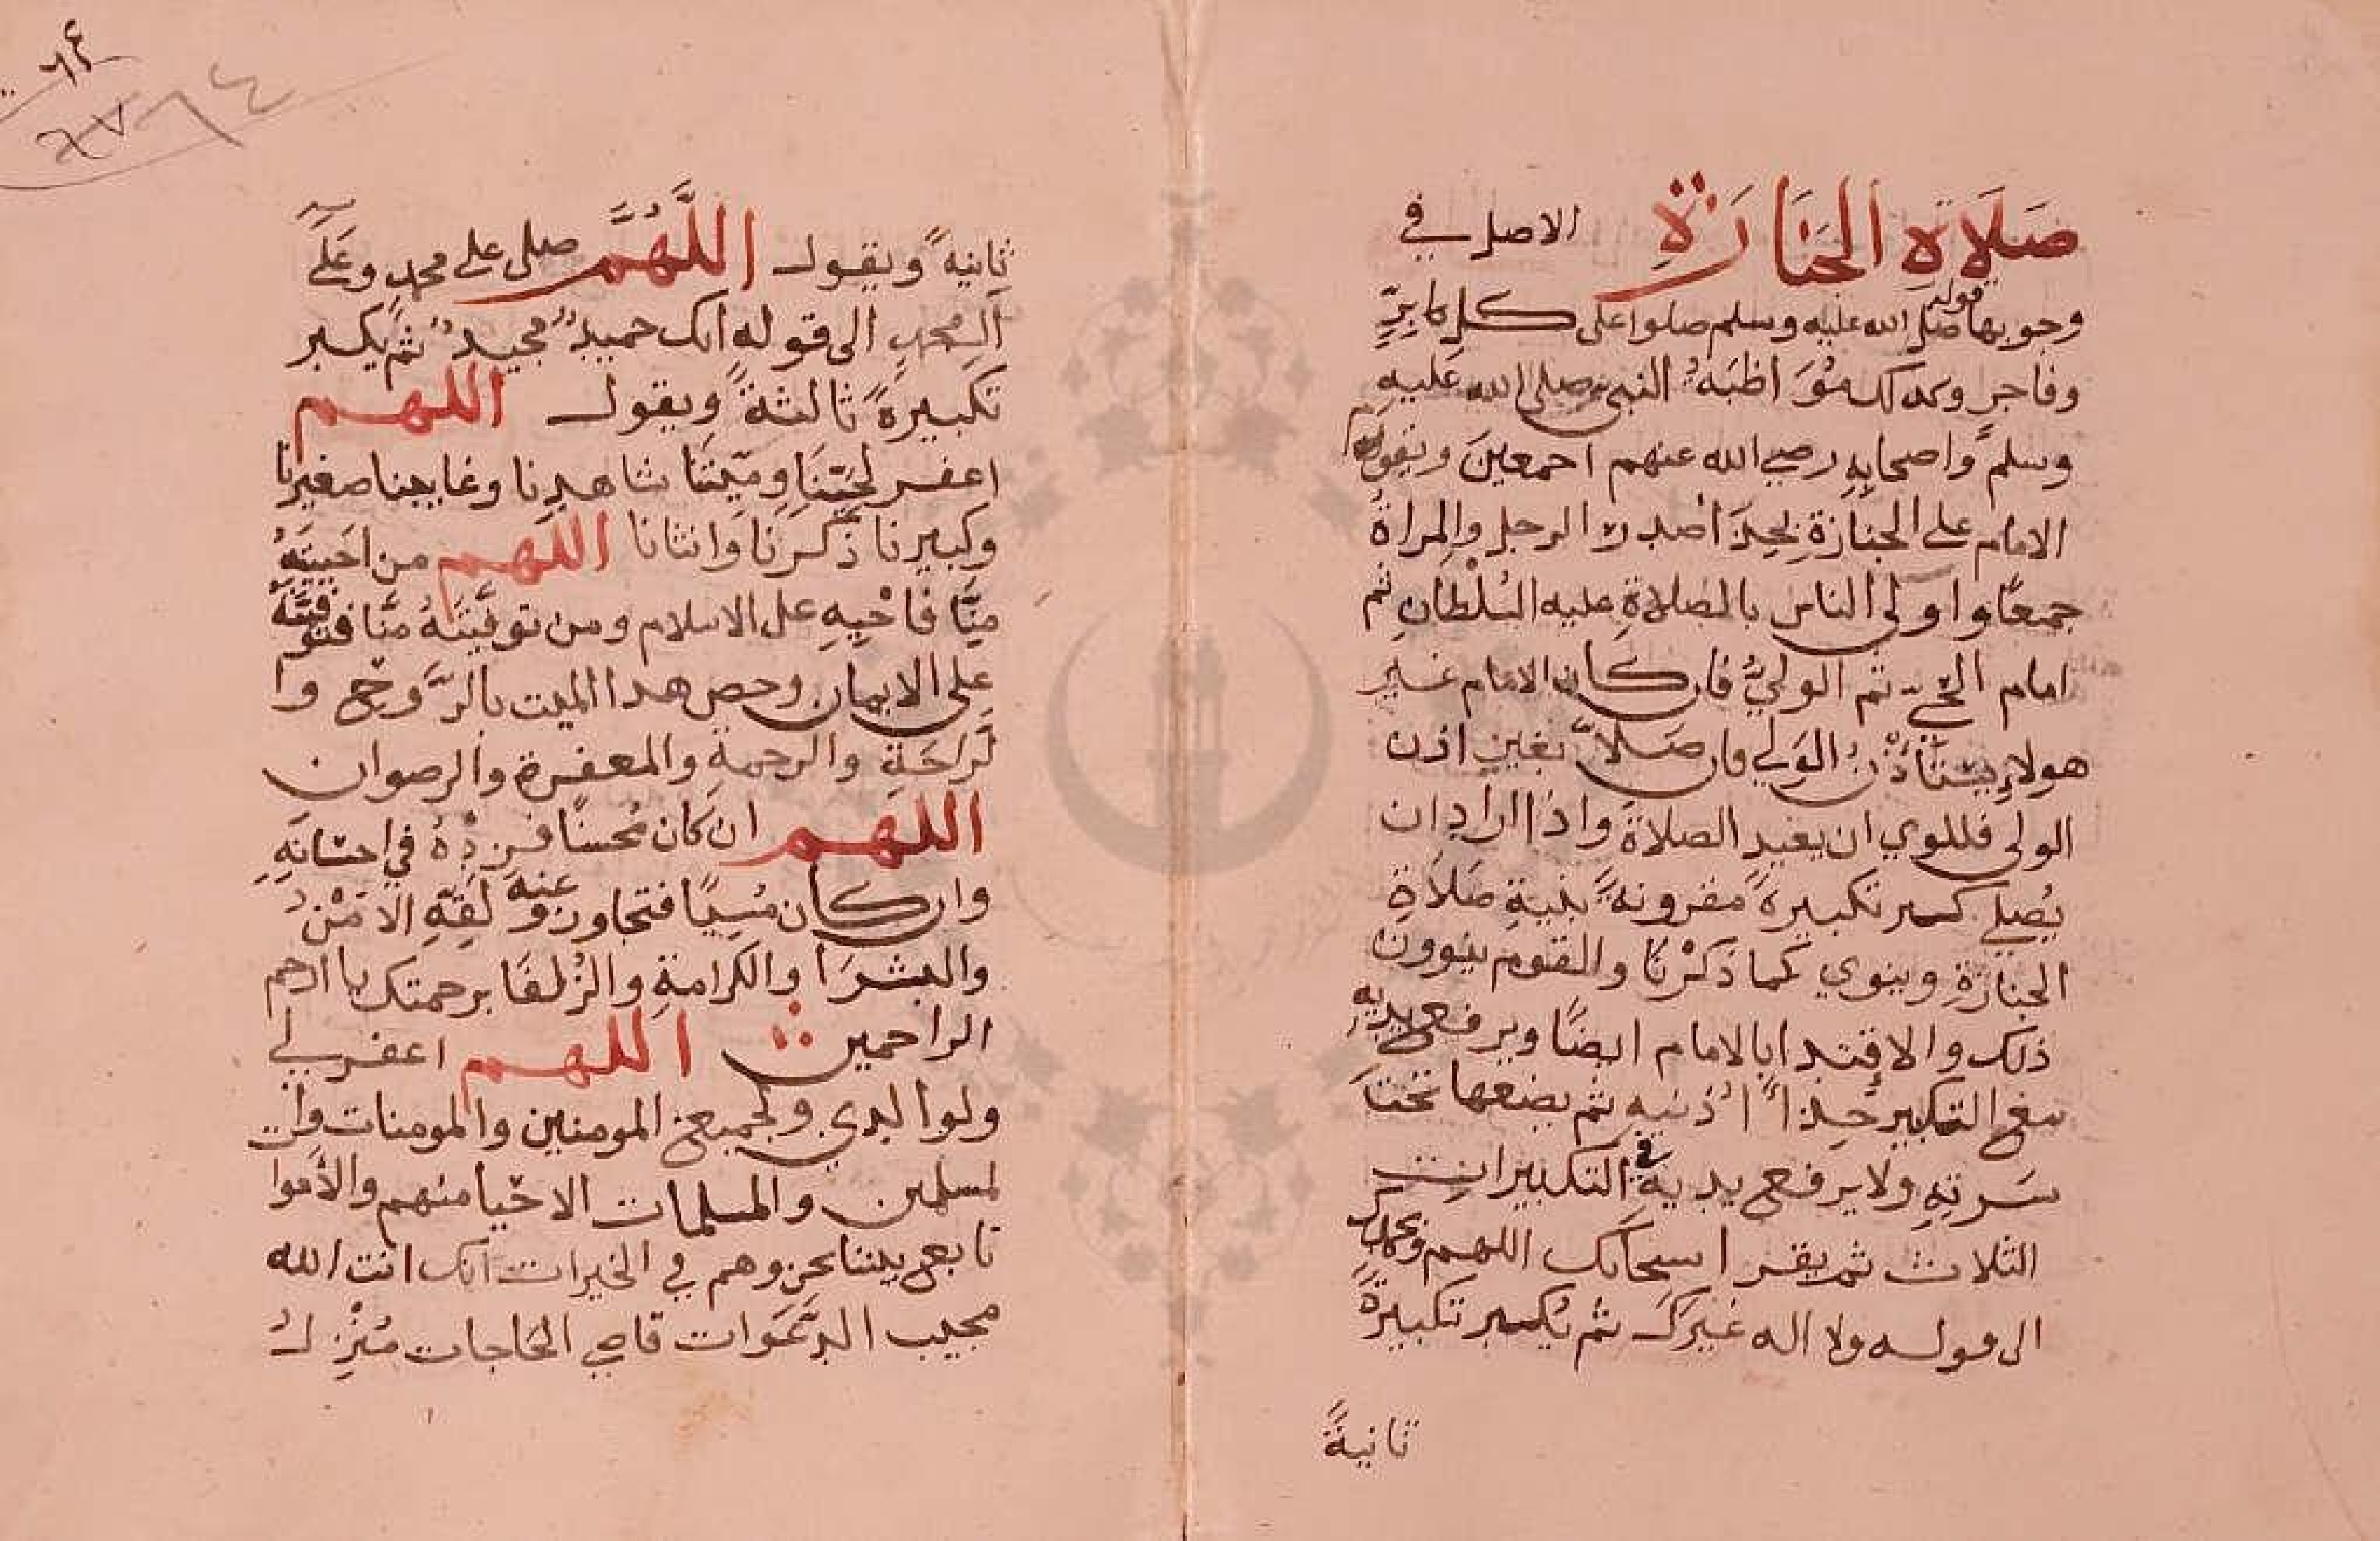 صَلَاةِ الجَنَازَةِ الاصل في
وجوبها قوله صلى الله عليه وسلم صلوا على كل بِرٍّ
وفاجرٍ وكدلك مُوَاظبَهُ النبي صلى الله عَليهِ
وسلم واصحابِهِ رضي الله عنهم اجمعينَ ويقوم
الامام على الجنازةِ بحِذَا صدر الرجل والمراة
جمعًا واولى الناس بالصلاةِ عليه السُلْطان ثم
امام الحَيِّ ثم الوليُّ فان كان الامام غير
هولاءِ يستأذنُ الوَلي فان صَلَّا بغير اذن
الولى فللولي ان يعيد الصلاةَ واذا اراد ان
يُصلي كبر تكبيرةً مقرونةً بنيةِ صَلَاةِ
الجنازَةِ وينوي كما ذكرْنَا والقوم ينوون
ذلك والاقتدا بالامام ايضًا ويرفع يديهِ
مع التكبير حِذاً اُذنيهِ ثم يضعها تحتَ
سَرتِهِ ولا يرفع يديه في التكبيراتِ
الثلاث ثم يقرا سبحانك اللهم وبحمدك
الى قوله ولا اله غيرَكَ ثم يُكبر تكبيرةً
ثانيةً
ثانيةً ويقول اللَّهُمَّ صلى على محمدٍ وعَلَى
آل محمدٍ الى قوله انك حميدٌ مجيدٌ ثم يكبر
تكبيرةً ثالثةً ويقول اللهم
اعفر لحَيّنَا ومَيّتنَا شاهدِنا وغايبنا صغيرنا
وكبيرنا ذكرنا وانثانا اللهم من احَييتَهُ
مِنَّا فاحْيِهِ على الاسلام ومن توفَّيتَهُ منَّا فتوفَّهُ
على الايمان وحص هدا الميت بالرَّوح وا
لرَّاحَةِ والرحمةِ والمعفرة والرصوان
اللهم ان كان مُحسنًا فزِدْهُ في احسَانِهِ
وان كان مُسِيًا فتجاوز عنه ولَقِّهِ الاَمْنُ
والبشرَا والكرامةِ والزُلفَا برحمتك يا ارحم
الراحمين اللهم اعفر لي
ولوالدي ولجميع المومنين والمومنات وا
لمسلمين والمسلمات الاحْيا منهم والاموا
تابع بيننا نحن وهم في الخيرات انك انت الله
مجيب الدَّعَوات قاصي الحَاجات مُنْزِلُ